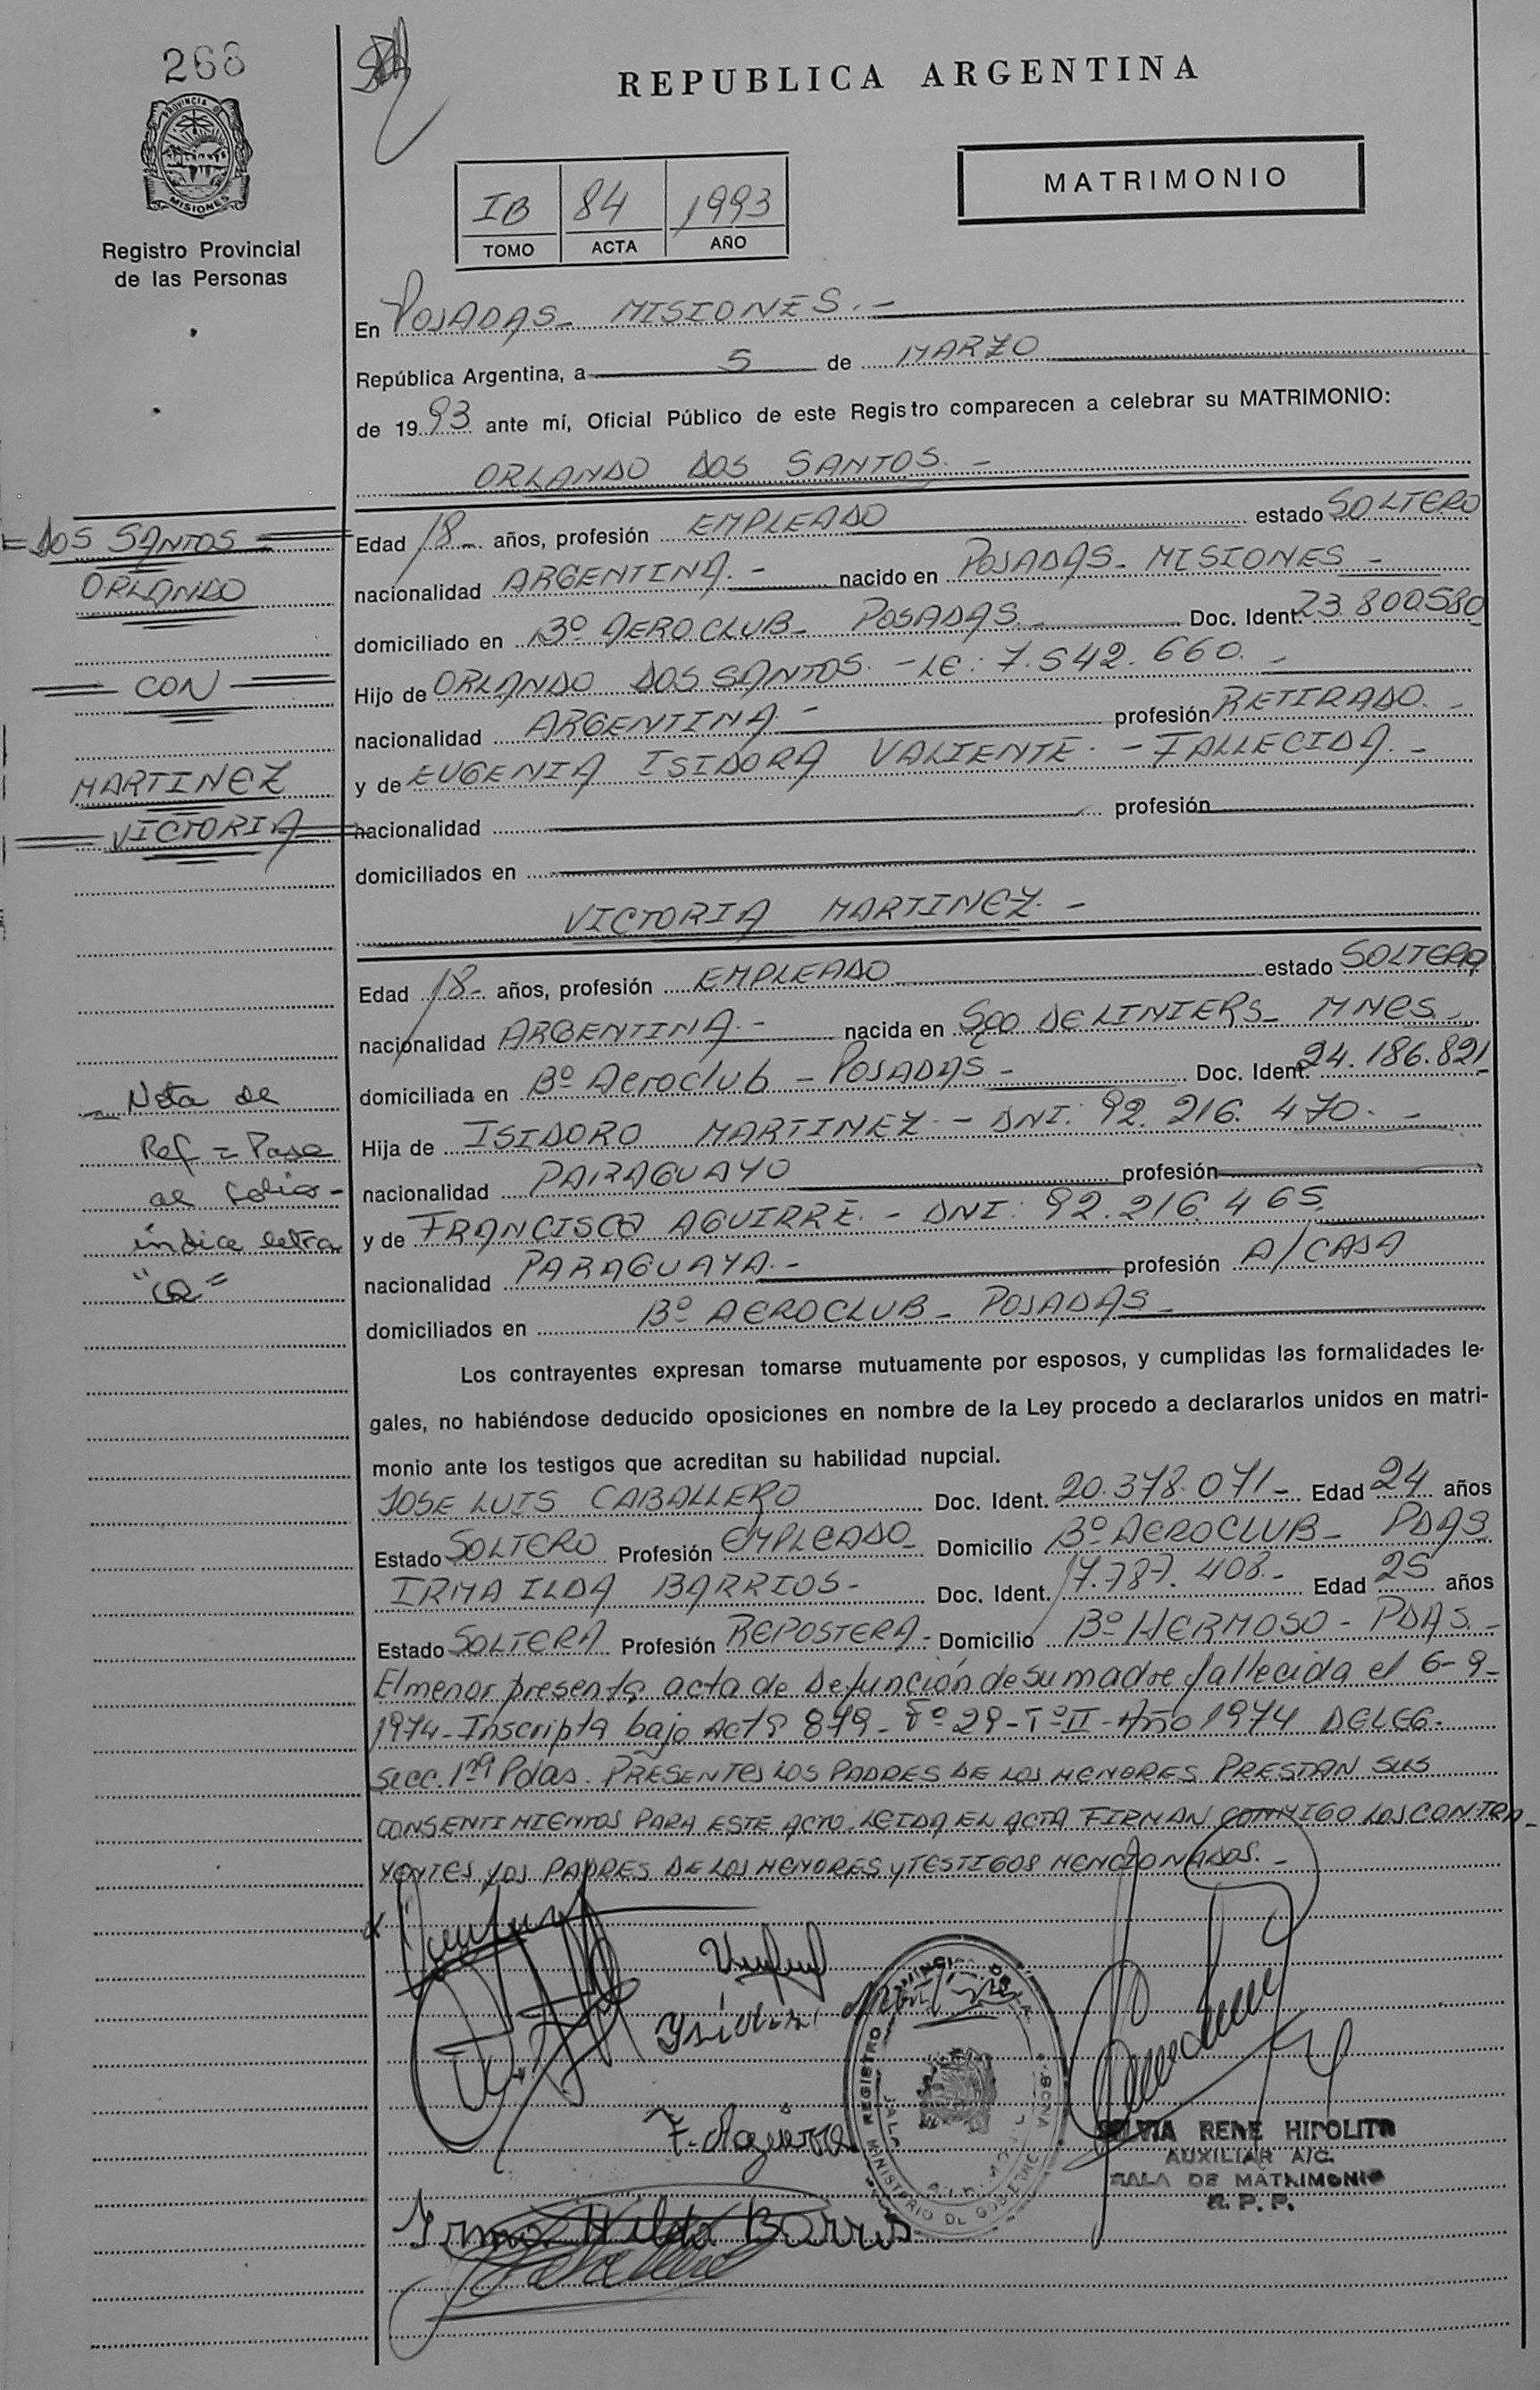 268
PROVINCIA DE
MISIONES
Registro Provincial
de las Personas
REPUBLICA ARGENTINA
MATRIMONIO
IB 84 1993
TOMO ACTA AÑO
En POSADAS - MISIONES. -
República Argentina, a 5 de MARZO
de 1993 ante mí, Oficial Público de este Registro comparecen a celebrar su MATRIMONIO:
ORLANDO DOS SANTOS. -
= DOS SANTOS =
ORLANDO
= CON =
MARTINEZ
= VICTORIA =
Edad 18 - años, profesión EMPLEADO estado SOLTERO
nacionalidad ARGENTINA. - nacido en POSADAS - MISIONES -
domiciliado en Bº AERO CLUB - POSADAS - Doc. Ident. 23.800.580
Hijo de ORLANDO DOS SANTOS. - LE: 7.542.660. -
nacionalidad ARGENTINA - profesión RETIRADO. -
y de EUGENIA ISIDORA VALIENTE. - FALLECIDA. -
nacionalidad profesión
domiciliados en
VICTORIA MARTINEZ. -
Edad 18 - años, profesión EMPLEADO estado SOLTERO
nacionalidad ARGENTINA. - nacida en Sco DE LINIERS - MNES -
domiciliada en Bº Aeroclub - POSADAS - Doc. Ident. 24.186.821
Hija de ISIDORO MARTINEZ - DNI: 92.216.470. -
nacionalidad PARAGUAYO profesión
y de FRANCISCA AGUIRRE. - DNI: 92.216.465.
nacionalidad PARAGUAYA. - profesión A/CASA
domiciliados en Bº AEROCLUB - POSADAS -
- Nota de
Ref = Pase
al folio -
indice letra
Los contrayentes expresan tomarse mutuamente por esposos, y cumplidas las formalidades le-
gales, no habiéndose deducido oposiciones en nombre de la Ley procedo a declararlos unidos en matri-
monio ante los testigos que acreditan su habilidad nupcial.
JOSE LUIS CABALLERO Doc. Ident. 20.378.071 - Edad 24 años
Estado SOLTERO Profesión EMPLEADO - Domicilio Bº AEROCLUB - PDAS.
IRMA ILDA BARRIOS - Doc. Ident. 17.787.408. - Edad 25 años
Estado SOLTERA Profesión REPOSTERA - Domicilio Bº HERMOSO - PDAS. -
El menor presenta acta de Defunción de su madre fallecida el 6-9-
1974 - Inscripta bajo Acta 879 - Fº 29 - Tº II - Año 1974 DELEG.
Secc. 1ra Pdas. PRESENTES LOS PADRES DE LOS MENORES PRESTAN SUS
CONSENTIMIENTOS PARA ESTE ACTO. LEIDA EL ACTA FIRMAN CONMIGO LOS CONTRA-
YENTES, LOS PADRES DE LOS MENORES y TESTIGOS MENCIONADOS. -
F. Aguirre
SILVIA RENE HIPOLITO
AUXILIAR A/C.
SALA DE MATRIMONIO
R. P. P.
Irma Hilda Barrios